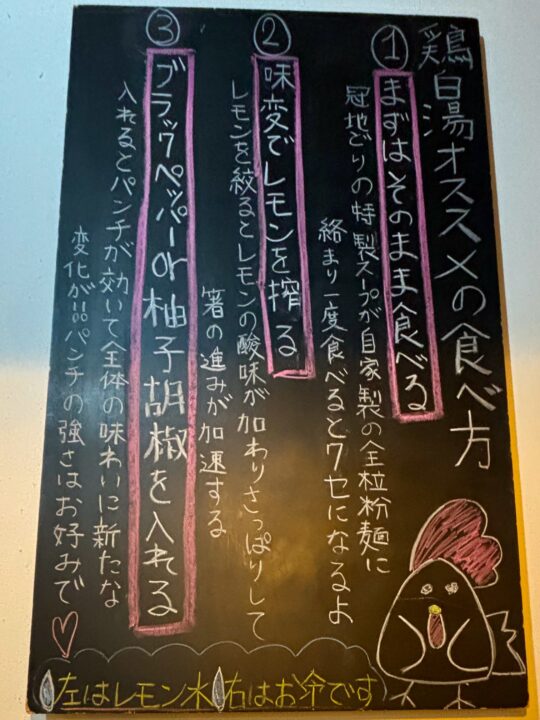 鶏白湯オススメの食べ方
①まずはそのまま食べる
冠地どりの特製スープが自家製の全粒粉麺に
絡まり一度食べるとクセになるよ
②味変でレモンを搾る
レモンを絞るとレモンの酸味が加わりさっぱりして
箸の進みが加速する
③ブラックペッパーor柚子胡椒を入れる
入れるとパンチが効いて全体の味わいに新たな
変化が!!パンチの強さはお好みで♡
左はレモン水右はお冷です